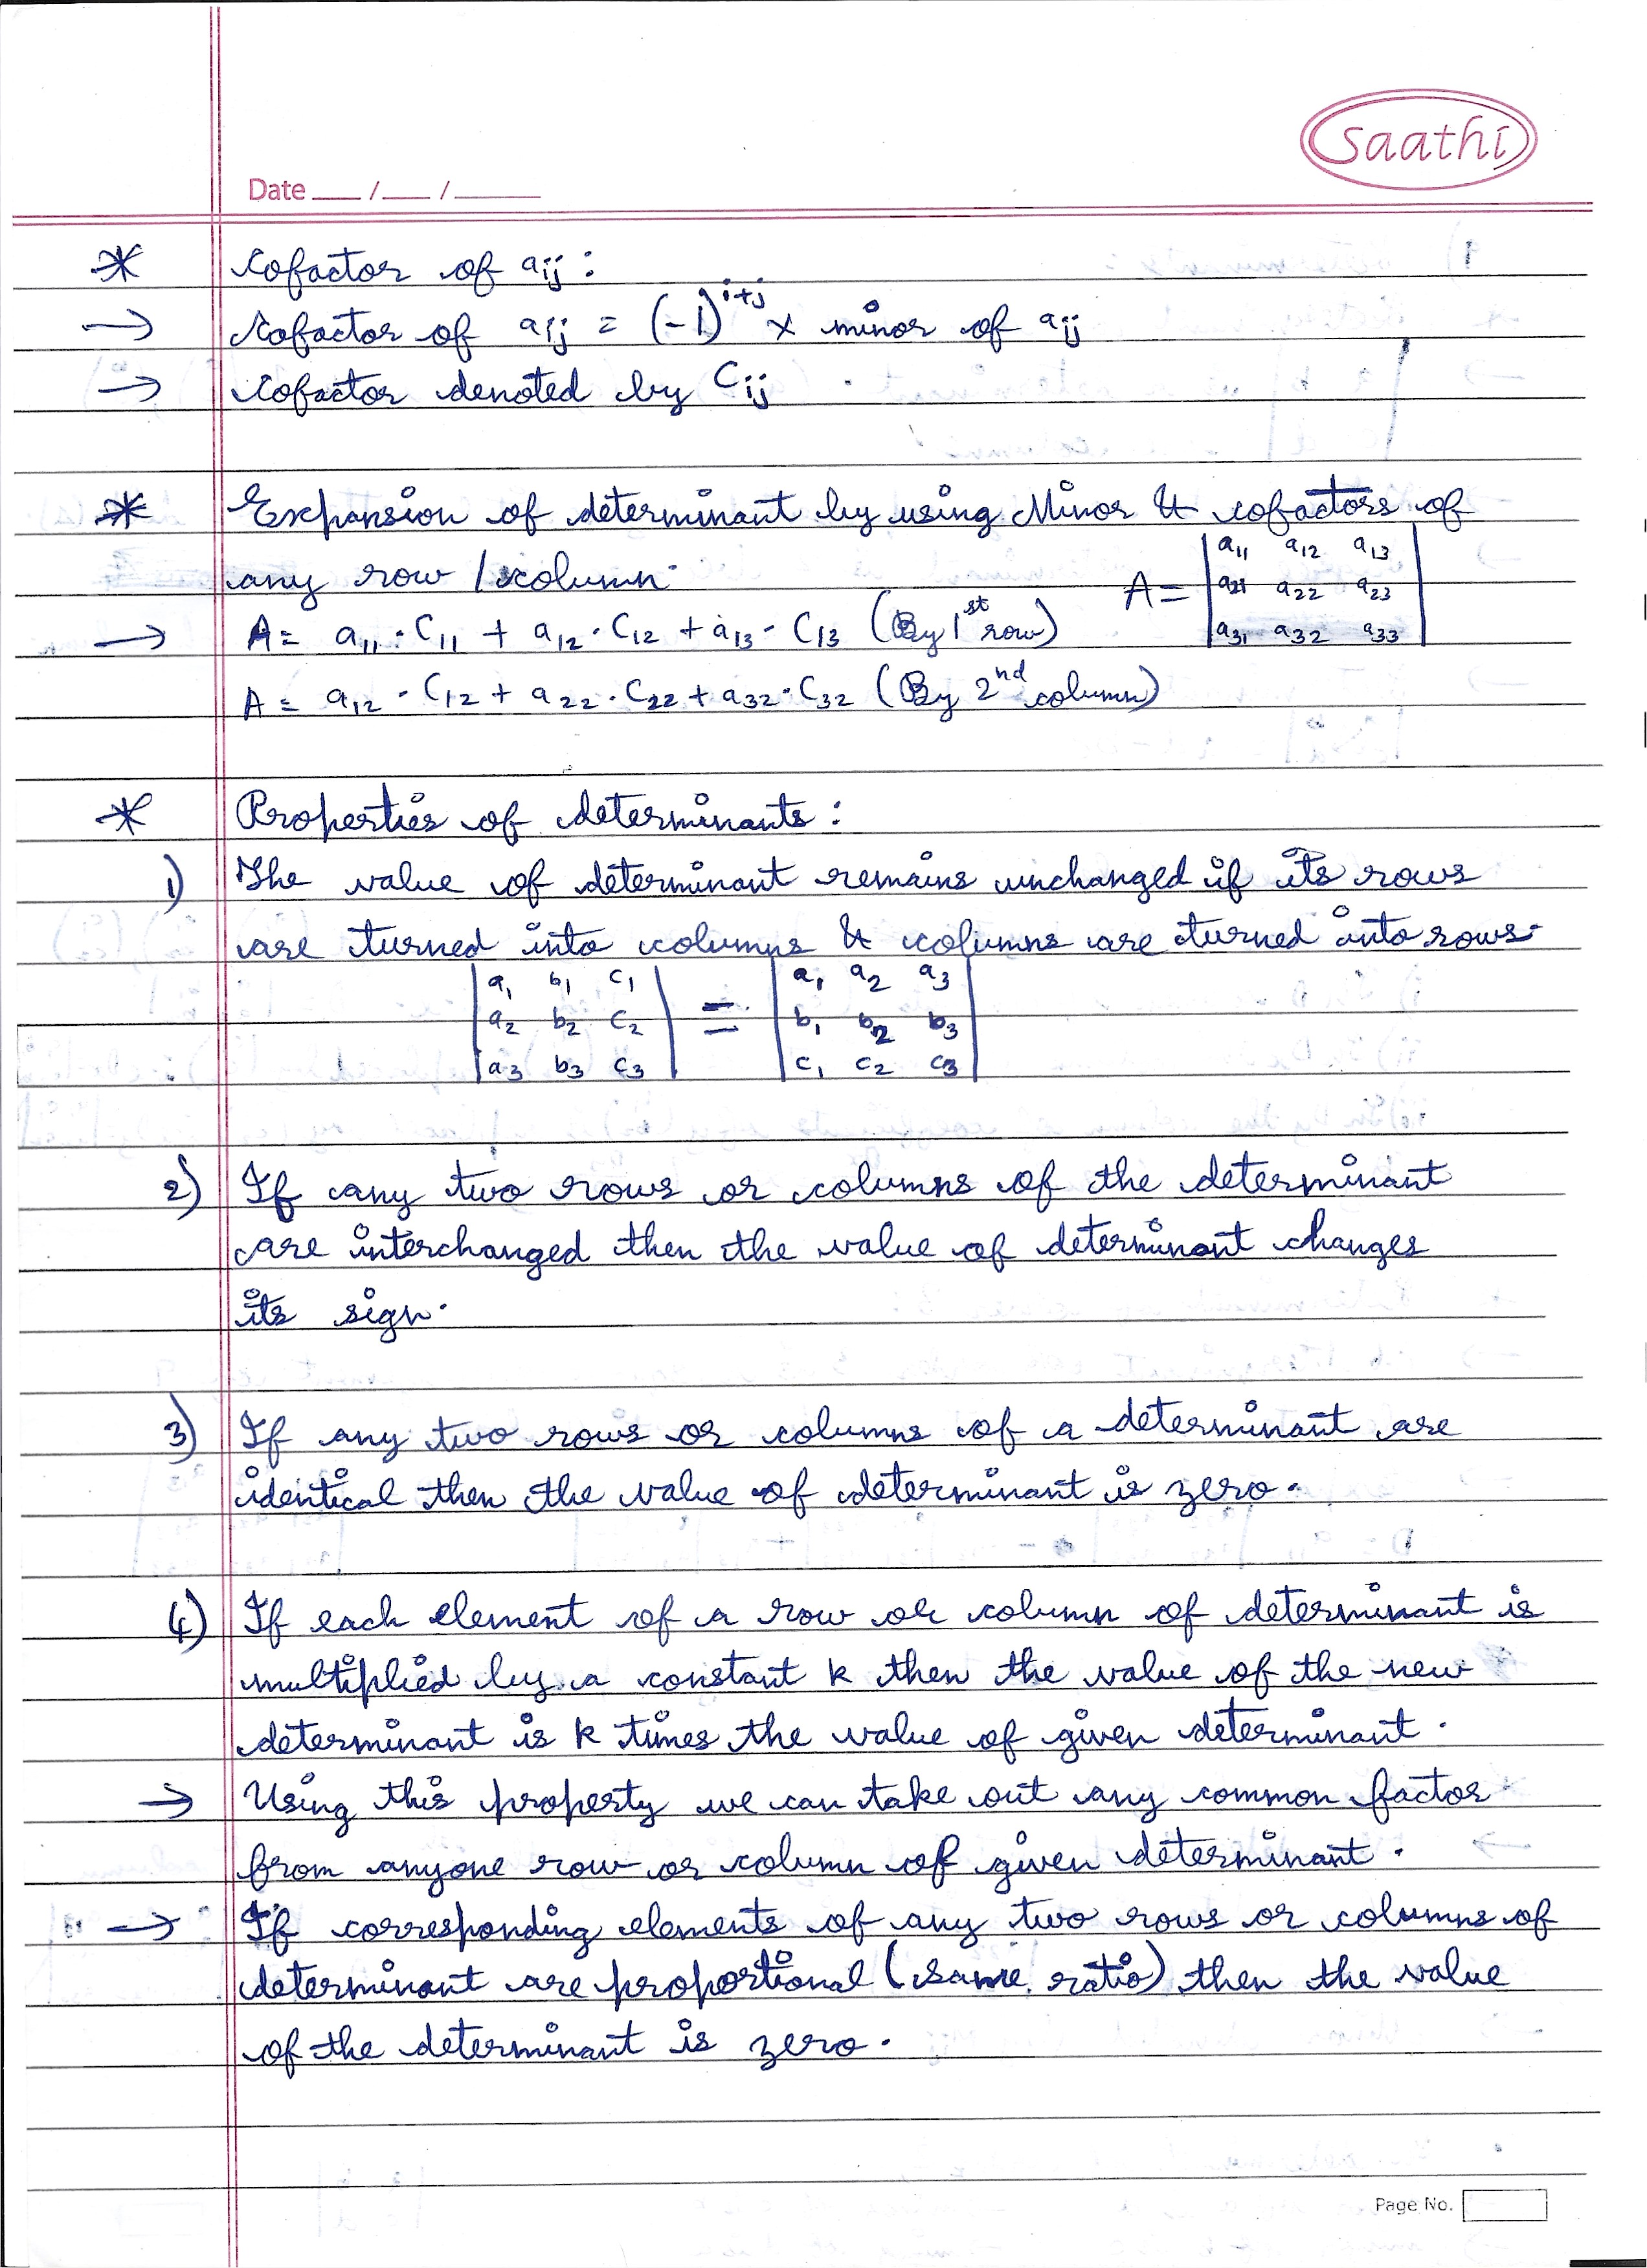 saathi
Date ___/___/_____
* Cofactor of aij :
→ Cofactor of aij = (-1)^i+j × minor of aij
→ Cofactor denoted by Cij
* Expansion of determinant by using Minor & cofactors of
any row / column.
A = | a11 a12 a13 |
| a21 a22 a23 |
| a31 a32 a33 |
→ A = a11 · C11 + a12 · C12 + a13 · C13 (By 1st row)
A = a12 · C12 + a22 · C22 + a32 · C32 (By 2nd column)
* Properties of determinants :
1) The value of determinant remains unchanged if its rows
are turned into columns & columns are turned into rows.
| a1 b1 c1 | = | a1 a2 a3 |
| a2 b2 c2 | | b1 b2 b3 |
| a3 b3 c3 | | c1 c2 c3 |
2) If any two rows or columns of the determinant
are interchanged then the value of determinant changes
its sign.
3) If any two rows or columns of a determinant are
identical then the value of determinant is zero.
4) If each element of a row or column of determinant is
multiplied by a constant k then the value of the new
determinant is k times the value of given determinant.
→ Using this property we can take out any common factor
from anyone row or column of given determinant.
→ If corresponding elements of any two rows or columns of
determinant are proportional (same ratio) then the value
of the determinant is zero.
Page No.